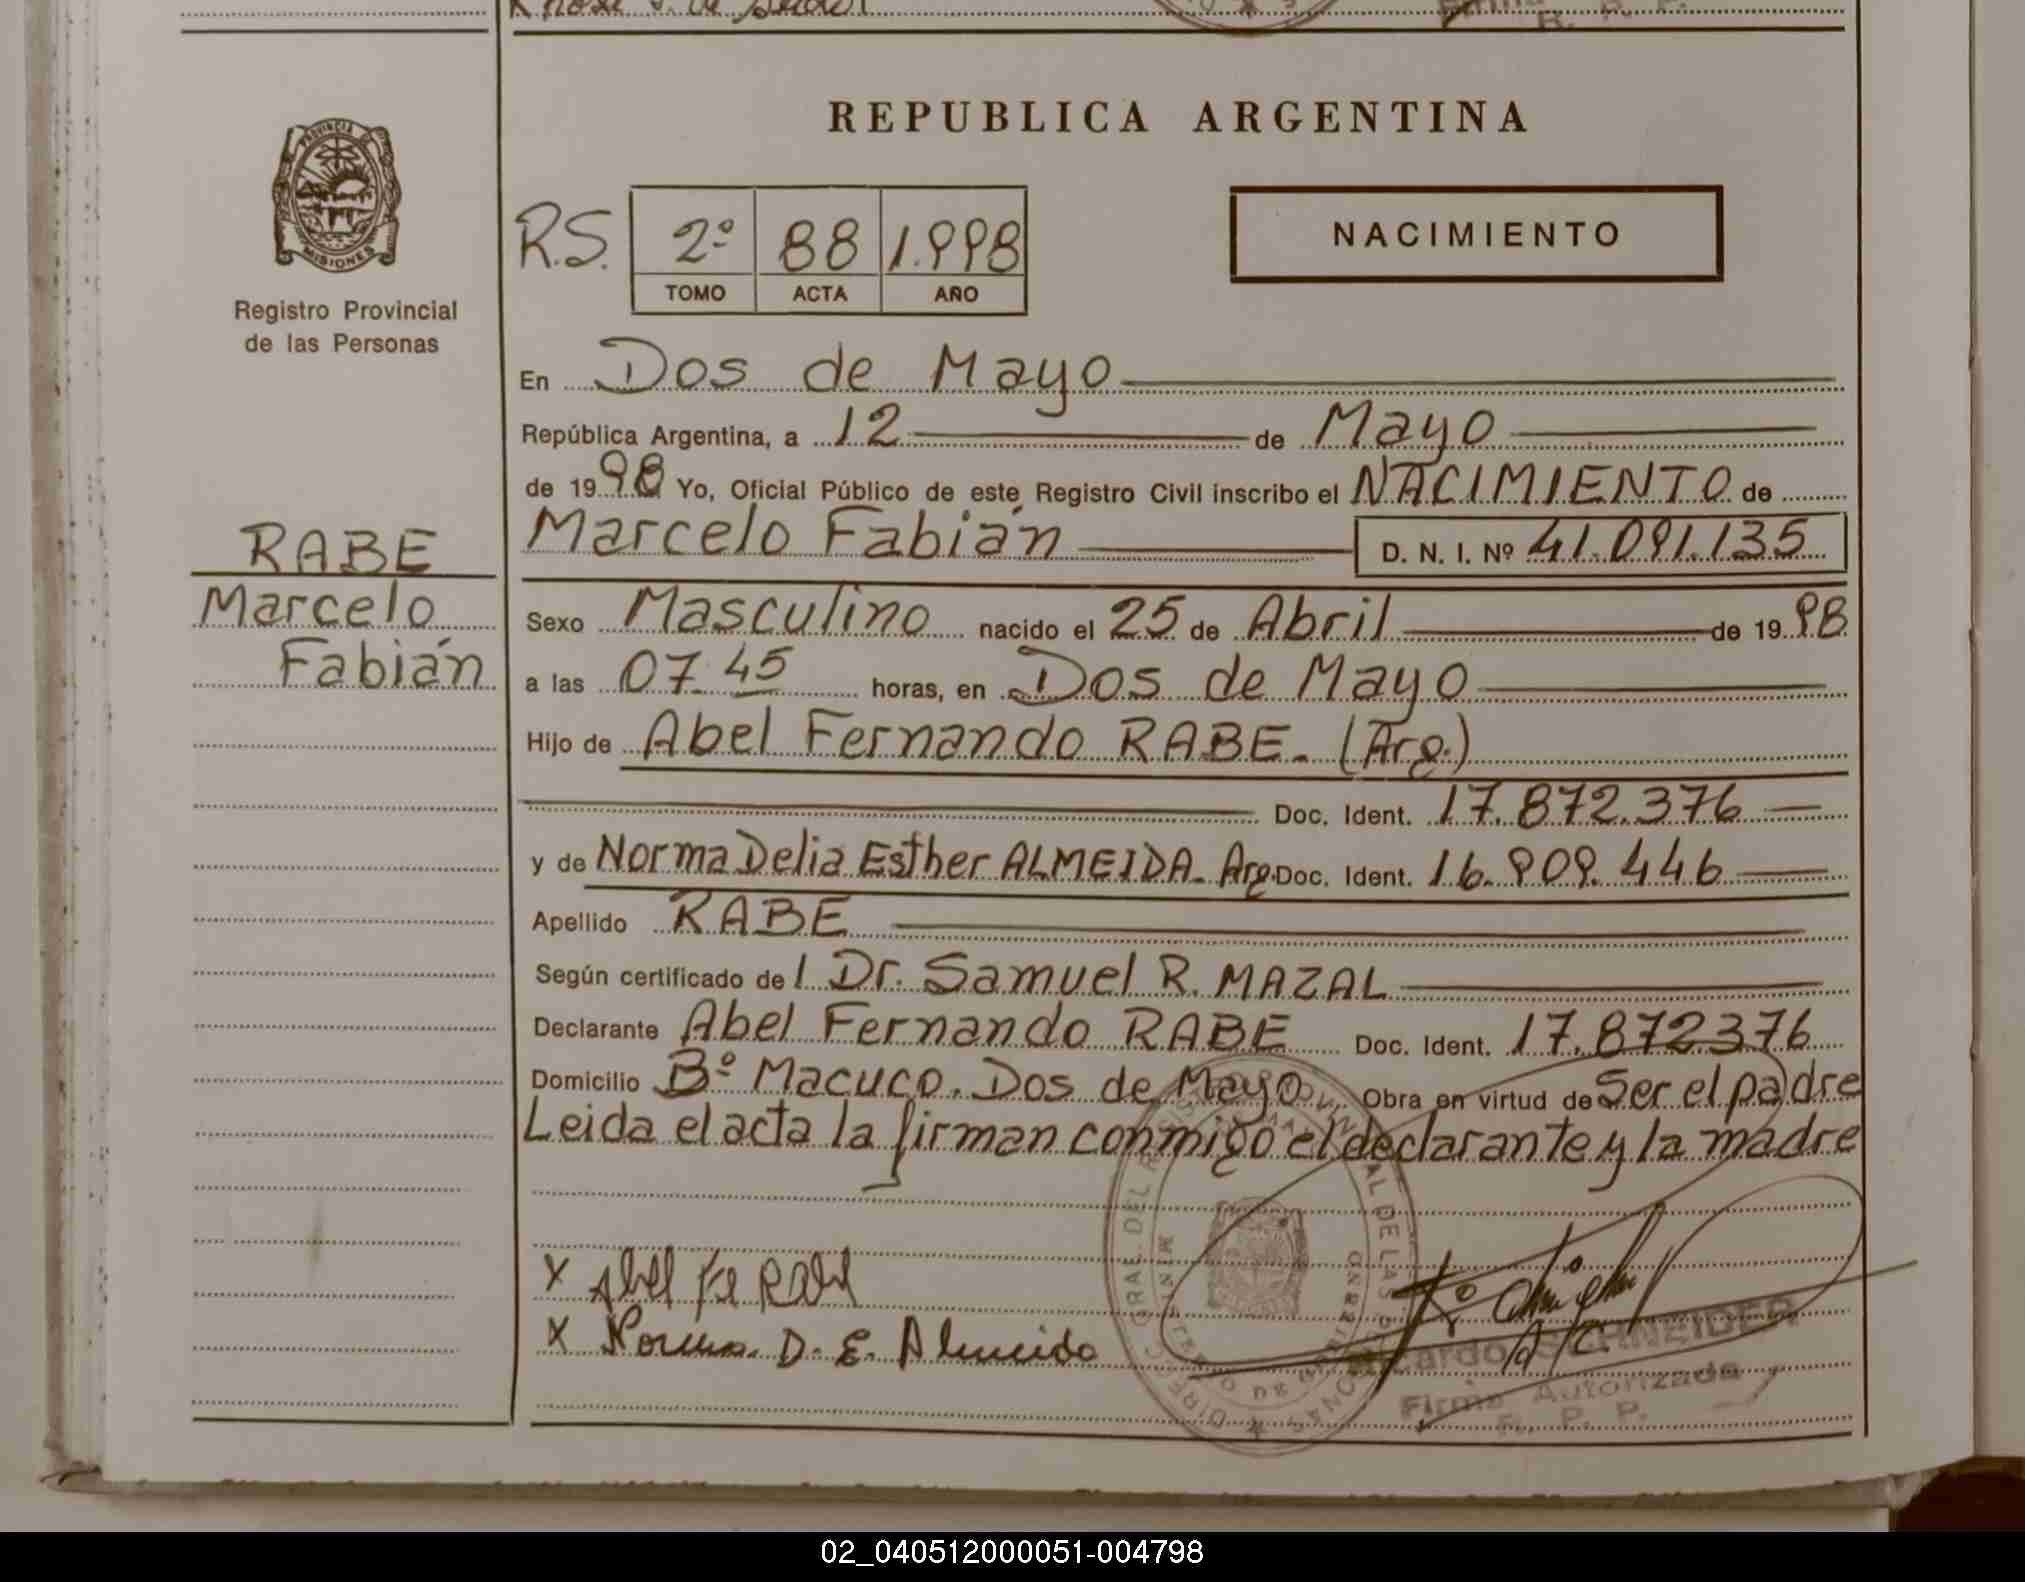 REPUBLICA ARGENTINA
PROVINCIA
MISIONES
Registro Provincial
de las Personas
R.S. 2º 88 1.998
TOMO ACTA AÑO
NACIMIENTO
En Dos de Mayo
República Argentina, a 12 de Mayo
de 1998 Yo, Oficial Público de este Registro Civil inscribo el NACIMIENTO de
RABE
Marcelo
Fabián
Marcelo Fabián D. N. I. Nº 41.091.135
Sexo Masculino nacido el 25 de Abril de 1998
a las 07.45 horas, en Dos de Mayo
Hijo de Abel Fernando RABE. (Arg.)
Doc. Ident. 17.872.376
y de Norma Delia Esther ALMEIDA. Arg. Doc. Ident. 16.909.446
Apellido RABE
Según certificado de l Dr. Samuel R. MAZAL
Declarante Abel Fernando RABE Doc. Ident. 17.872376
Domicilio Bº Macuco. Dos de Mayo Obra en virtud de Ser el padre
Leida el acta la firman conmigo el declarante y la madre
X Abel Fe Rabe
X Norma D. E. Almeida
Ricardo SCHNEIDER
Firma Autorizada
R. P. P.
02_040512000051-004798